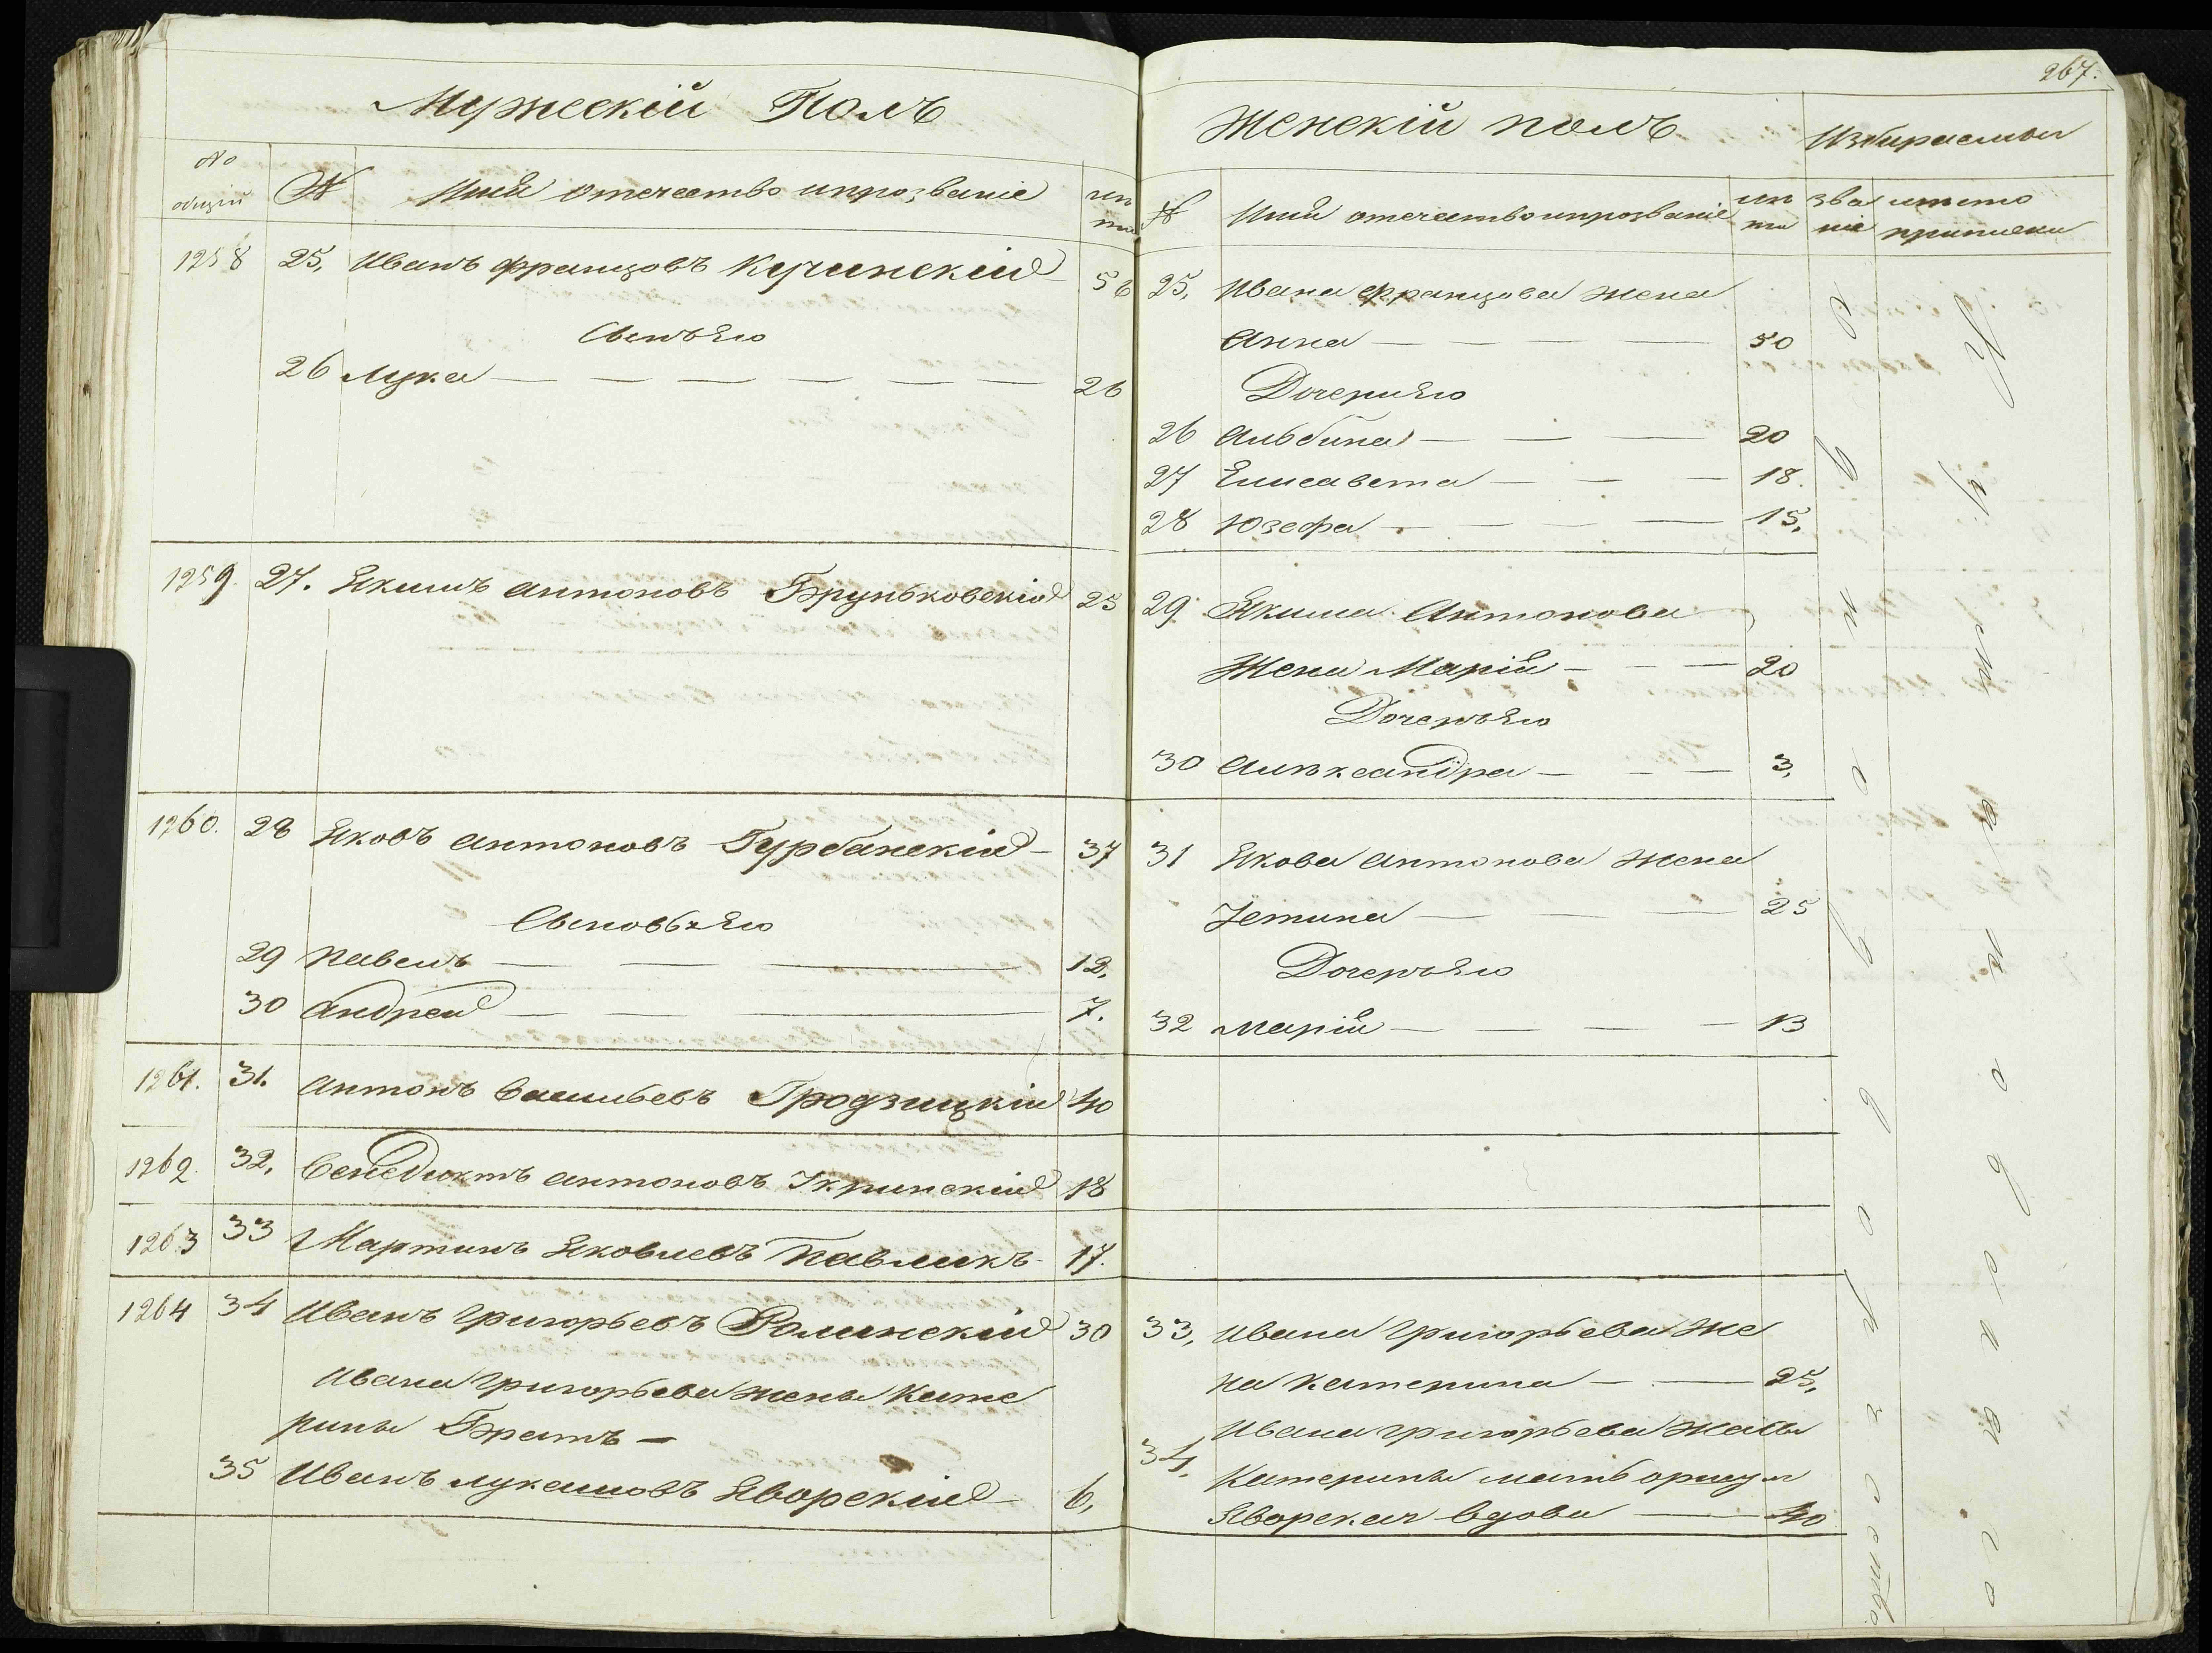 267.
Мужескій Полъ
№ общій
№
Имя отечество ипрозваніе
1258 25, Иванъ Францовъ Кучинскій 56
Сынъ Его
26 Лука 26
1259. 27. Якимъ Антоновъ Бруньковскій 25
1260. 28 Яковъ Антоновъ Гурбанскій 37
Сыновья Его
29 Павелъ 12.
30 Андрей 7.
1261. 31. Антонъ Васильевъ Гродзицкій 40
1262. 32, Венедиктъ Антоновъ Скринскій 18
1263 33 Мартинъ Яковлевъ Павликъ 17.
1264 34 Иванъ Григорьевъ Ролинскій 30
Ивана Григорьева жены Кате
рины Братъ
35 Иванъ Лукашовъ Яворскій 6,
Женскій полъ
Избираемы
№
Имя отечество ипрозваніе
лѣ та
зва ніе
имѣто приписки
25, Ивана Францова жена
Анна 50
Дочери Его
26 Альбина 20
27 Елисавета 18.
28 Юзефа 15,
29 Якима Антонова
Жена Марія 20
Дочерь Его
30 Александра 3,
31 Якова Антонова жена
Устина 25
Дочерь Его
32 Марія 13
33, Ивана Григорьева Же
на Катерина 25,
Ивана Григорьева жены
34. Катерины мать
Яворская вдова 40